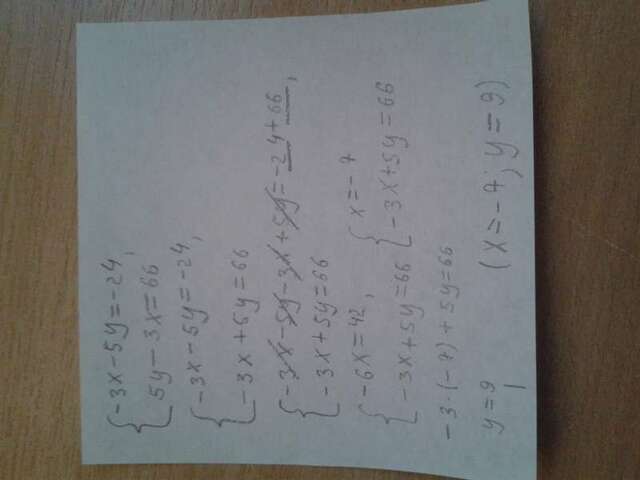 -3x-5y=-24,
5y-3x=66
-3x-5y=-24,
-3x+5y=66
-3x-5y-3x+5y=-24+66,
-3x+5y=66
-6x=42, x=-7
-3x+5y=66 -3x+5y=66
-3·(-7)+5y=66
y=9 (x=-7; y=9)